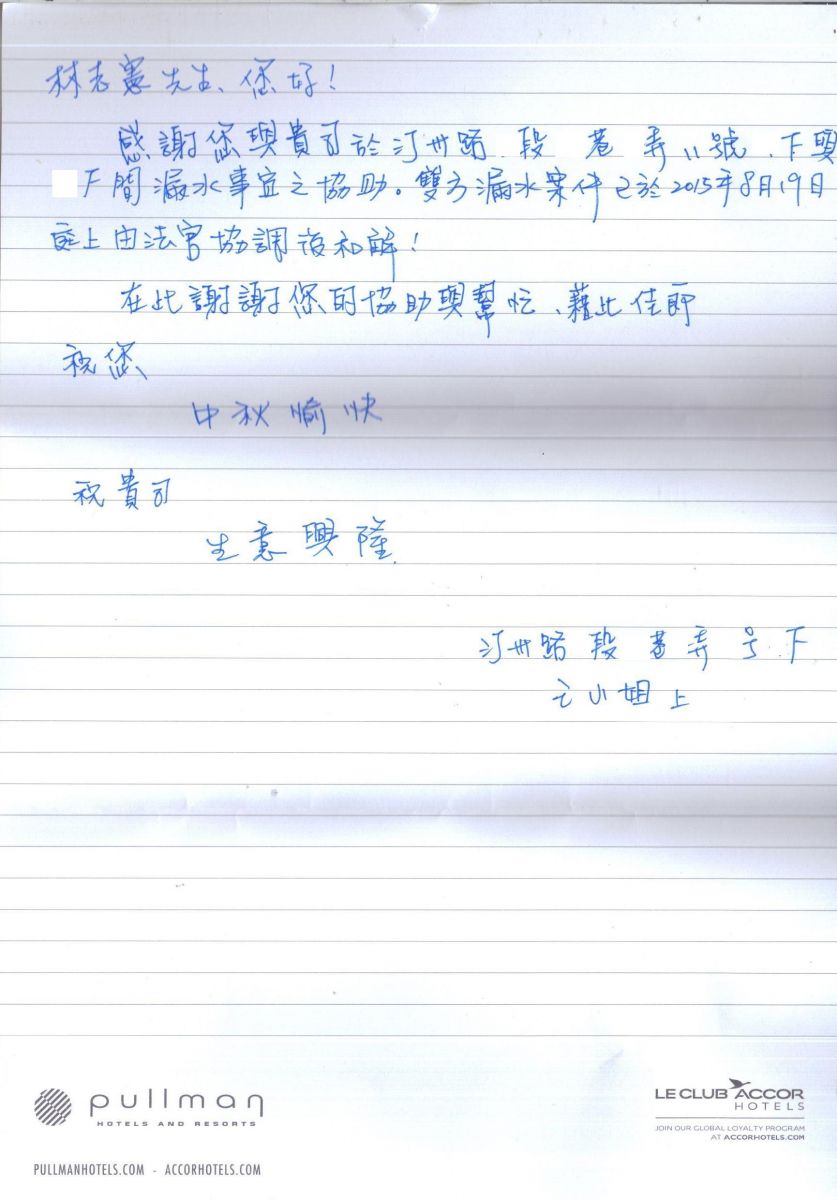 林志憲先生、您好！
感謝您與貴司於汀州路 段 巷 弄 11號 F與
F間漏水事宜之協助。雙方漏水案件已於2015年8月19日
庭上由法官協調後和解！
在此謝謝您的協助與幫忙、藉此佳節
祝您
中秋愉快
祝貴司
生意興隆
汀州路 段 巷 弄 号 F
小姐上
pullman
HOTELS AND RESORTS
PULLMANHOTELS.COM - ACCORHOTELS.COM
LE CLUB ACCOR
HOTELS
JOIN OUR GLOBAL LOYALTY PROGRAM
AT ACCORHOTELS.COM